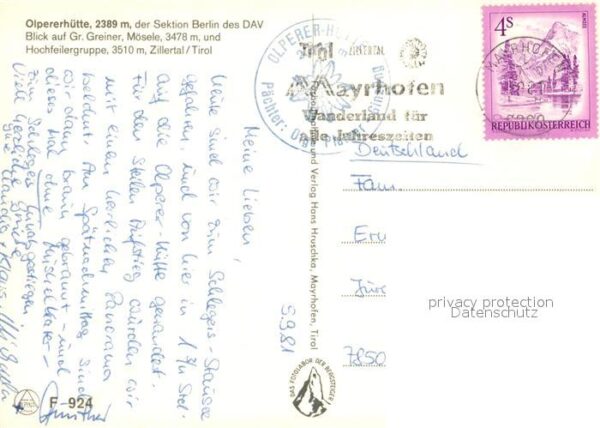 Olpererhütte, 2389 m, der Sektion Berlin des DAV
Blick auf Gr. Greiner, Mösele, 3478 m, und
Hochfeilergruppe, 3510 m, Zillertal / Tirol
OLPERER-HÜTTE
Pächter:
Tirol ZILLERTAL
Mayrhofen
Wanderland für
alle Jahreszeiten
MAYRHOFEN
4 S
REPUBLIK ÖSTERREICH
Meine Lieben!
Heute sind wir zum Schlegeis-Stausee
gefahren und von hier in 1 3/4 Std.
auf die Olperer-Hütte gewandert.
Für den steilen Aufstieg wurden wir
mit einem herrlichen Panorama
belohnt. Am Spätnachmittag sind
wir dann braun gebrannt - und
dieses Mal ohne Muskelkater -
zum Schlegeis
Viele herzliche Grüße
Günther
5.9.81
und Verlag Hans Hruschka, Mayrhofen, Tirol
Deutschland
Fam.
Eru
7850
privacy protection
Datenschutz
DAS FOTOLABOR DER BERGSTEIGER
F-924